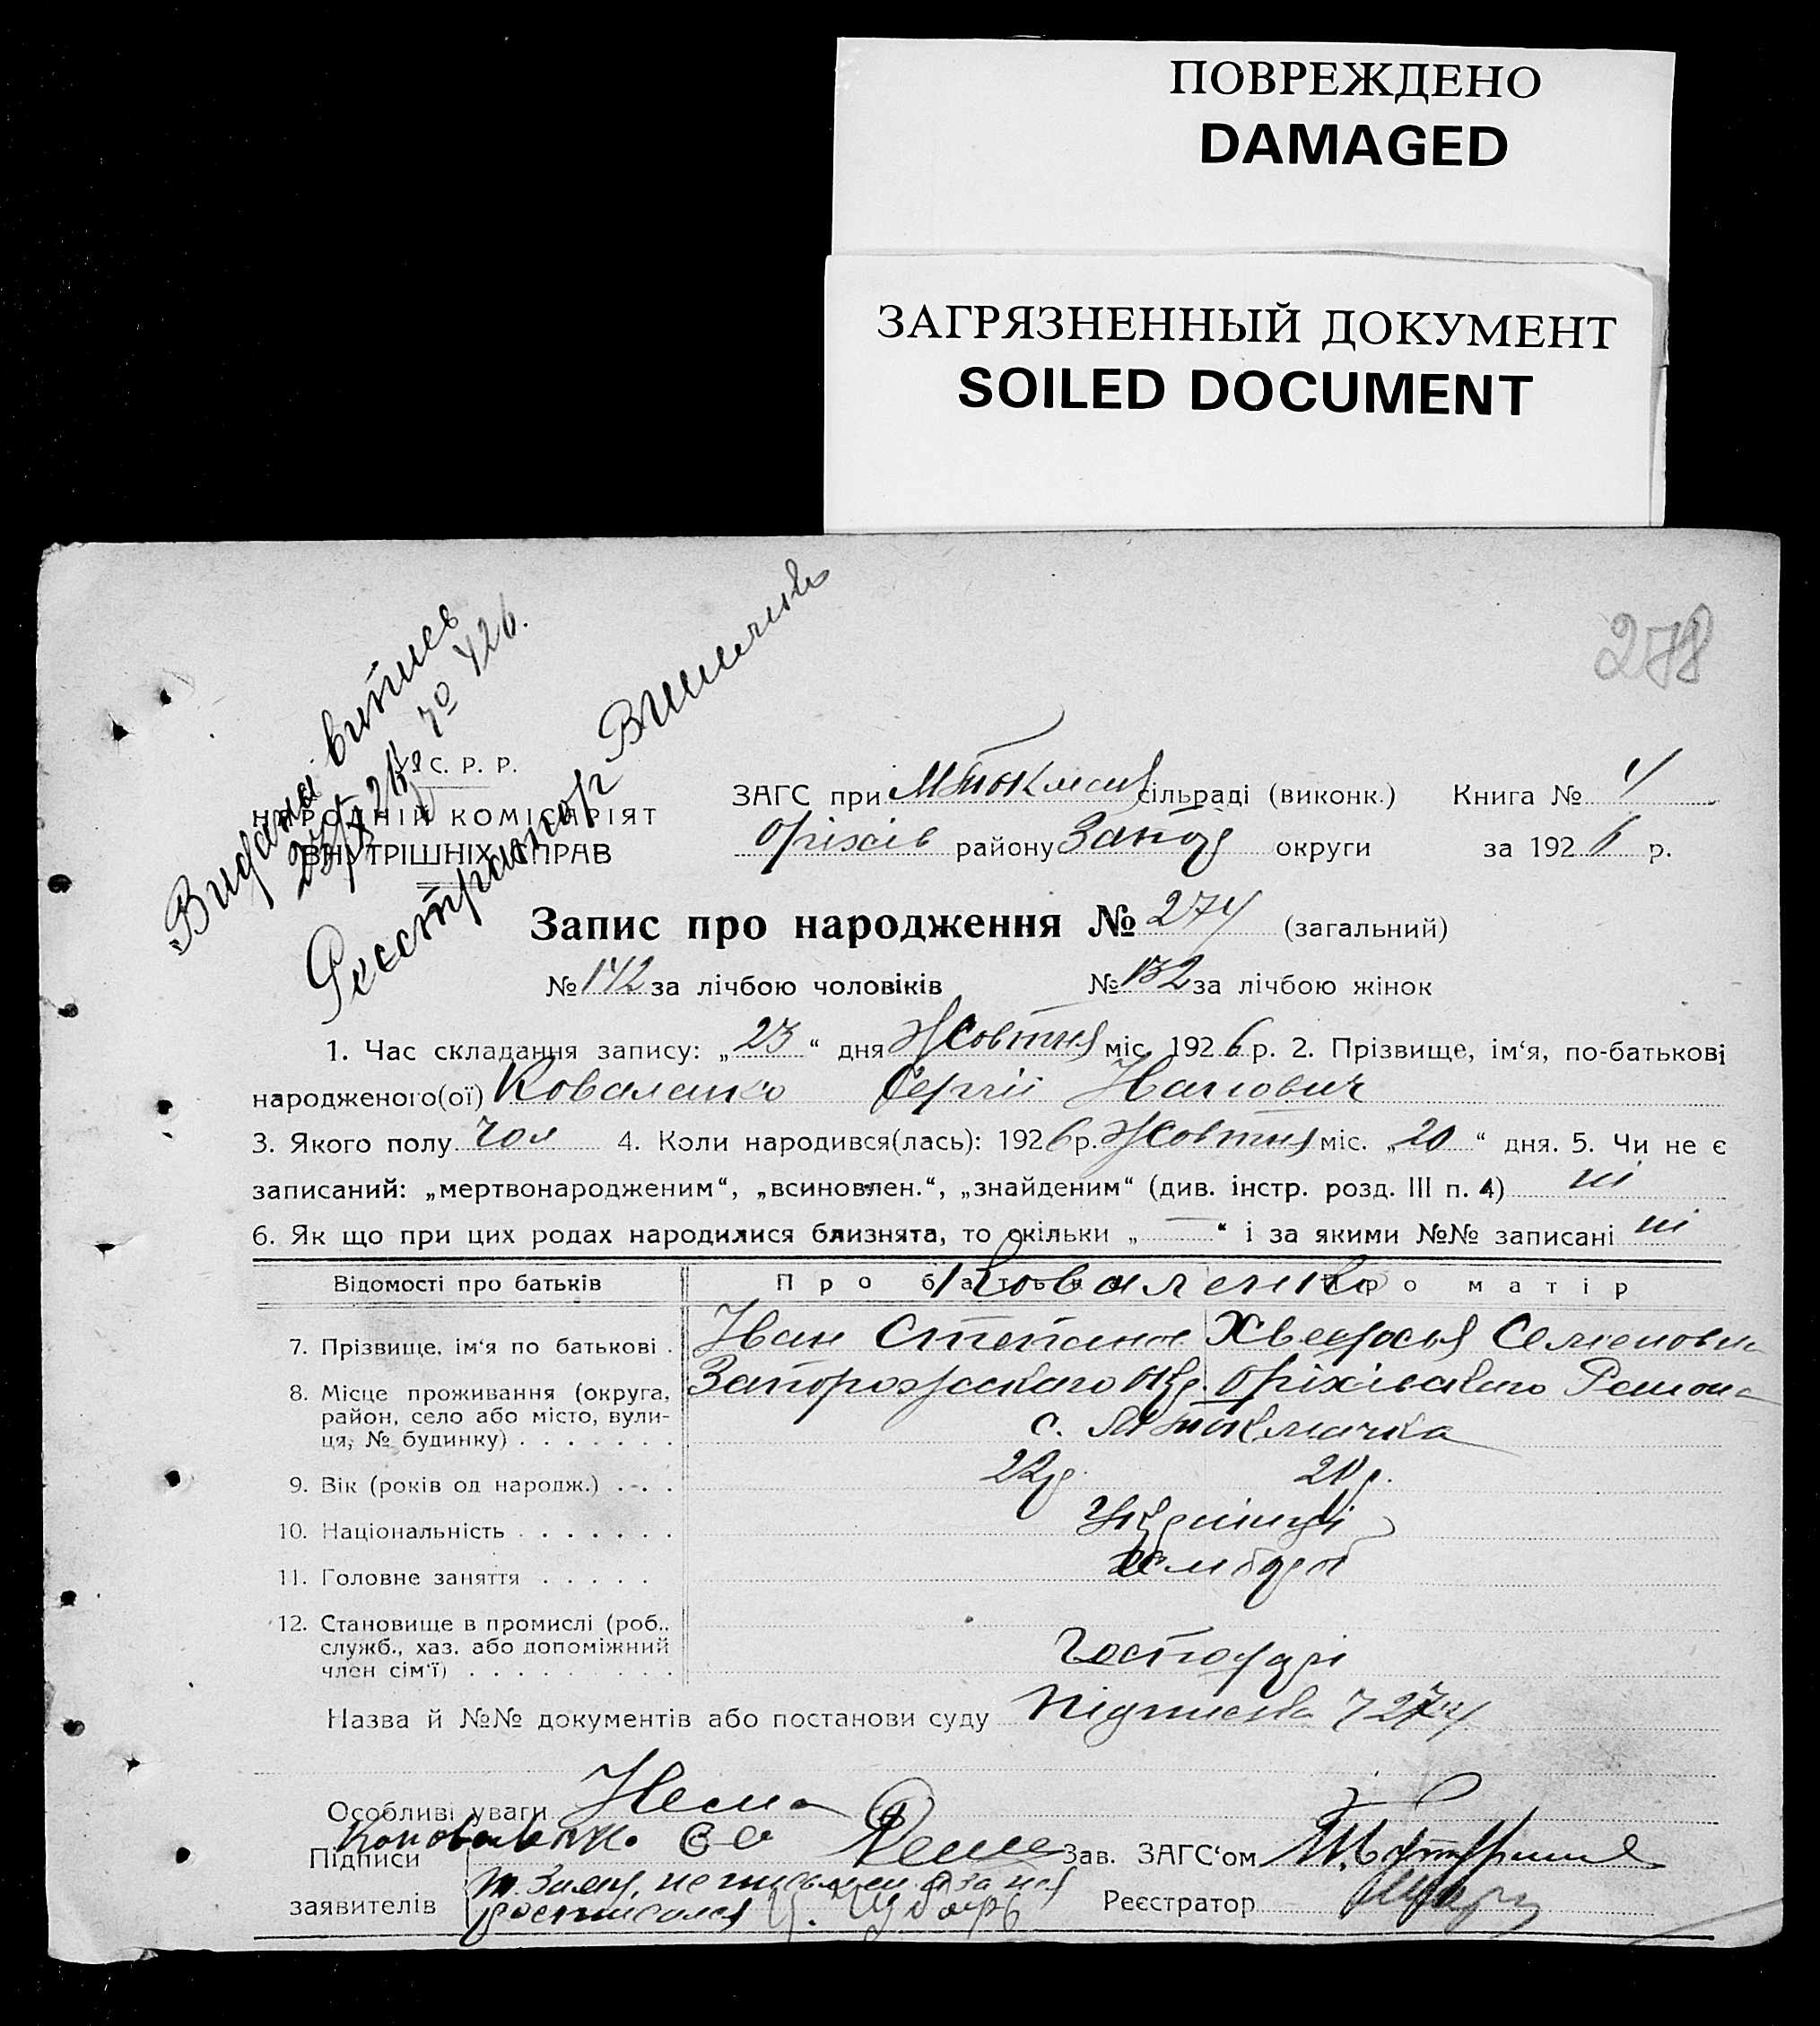 ПОВРЕЖДЕНО
DAMAGED
ЗАГРЯЗНЕННЫЙ ДОКУМЕНТ
SOILED DOCUMENT
278
Видана витпсь
Реєстратор
У. С. Р. Р.
НАРОДНІЙ КОМІСАРІЯТ
ВНУТРІШНІХ СПРАВ
ЗАГС при МТокмац сільраді (виконк.) Книга № 4
Оріхів району Запоз округи за 1926 р.
Запис про народження № 274 (загальний)
№ 142 за лічбою чоловіків № 132 за лічбою жінок
1. Час складання запису: „23“ дня Жовтня міс. 1926 р. 2. Прізвище, ім‘я, по-батькові
народженого(ої) Коваленко Сергій Іванович
3. Якого полу чол 4. Коли народився(лась): 1926 р. Жовтня міс. „20“ дня. 5. Чи не є
записаний: „мертвонародженим“, „всиновлен.“, „знайденим“ (див. інстр. розд. III п. 4) ні
6. Як що при цих родах народилися близнята, то скільки „—“ і за якими №№ записані ні
Відомості про батьків Про батька Про матір
Коваленко
7. Прізвище, ім‘я по батькові . Іван Степанов Хведосья Семеновна
8. Місце проживання (округа, район, село або місто, вулиця, № будинку) . . . . . . . Запорожского окр. Оріхівсвого Району
с. МТокмачка
9. Вік (років од народж.) . . . 22р. 20р.
10. Національність . . . . . . . Українці
11. Головне заняття . . . . . хлібороб
12. Становище в промислі (роб., служб., хаз. або допоміжний член сім‘ї) . . . . . . . . . Господарі
Назва й №№ документів або постанови суду Підписка 7274
Особливі уваги Нема
Підписи
заявителів
неписьмен а за неї
росписался
Зав. ЗАГС‘ом
Реєстратор